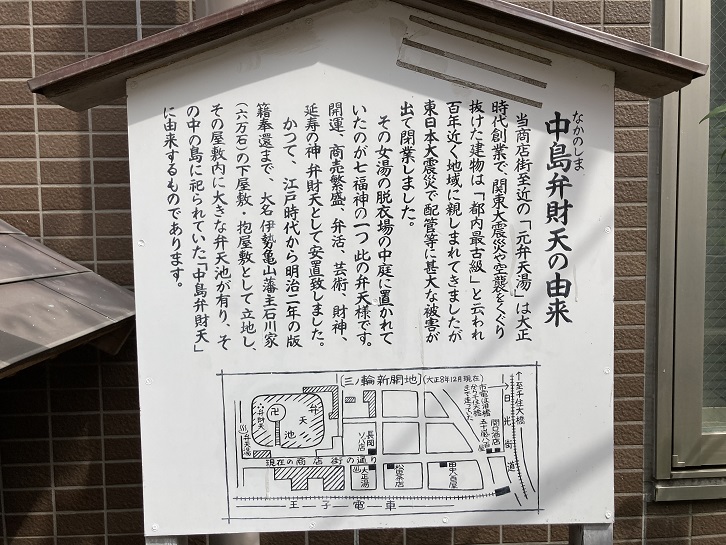 なかのしま
中島弁財天の由来
当商店街至近の「元弁天湯」は大正
時代創業で、関東大震災や空襲をくぐり
抜けた建物は「都内最古級」と云われ
百年近く地域に親しまれてきましたが
東日本大震災で配管等に甚大な被害が
出て閉業しました。
その女湯の脱衣場の中庭に置かれて
いたのが七福神の一つ此の弁天様です。
開運、商売繁盛、弁活、芸術、財神、
延寿の神 弁財天として安置致しました。
かつて、江戸時代から明治二年の版
籍奉還まで、大名 伊勢亀山藩主石川家
(六万石)の下屋敷・抱屋敷として立地し、
その屋敷内に大きな弁天池が有り、そ
の中の島に祀られていた「中島弁財天」
に由来するものであります。
(三ノ輪新開地)(大正8年12月現在)
↑至千住大橋
日光街道
関口酒店
弁天池
卍
弁財天
♨弁天湯
長岡ソバ店
現在の商店街の通り
大正湯
松田茶店
王子電車